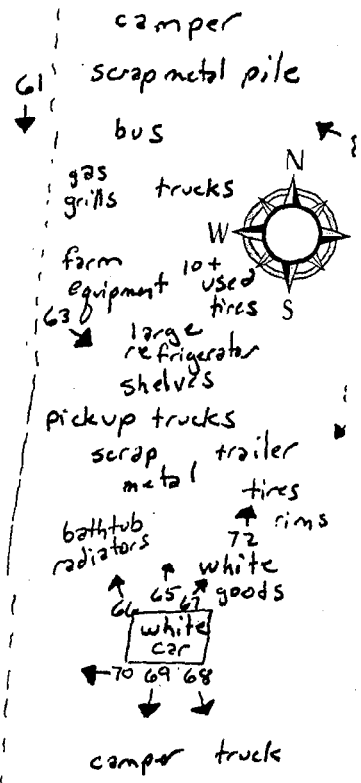 camper
61
scrap metal pile
bus
N
gas
grills
trucks
W
farm
equipment
10+
used
tires
S
63
large
refrigerator
shelves
pickup trucks
scrap
metal
trailer
tires
rims
72
bathtub
radiators
white
goods
66 65 67
white
car
70 69 68
camper truck